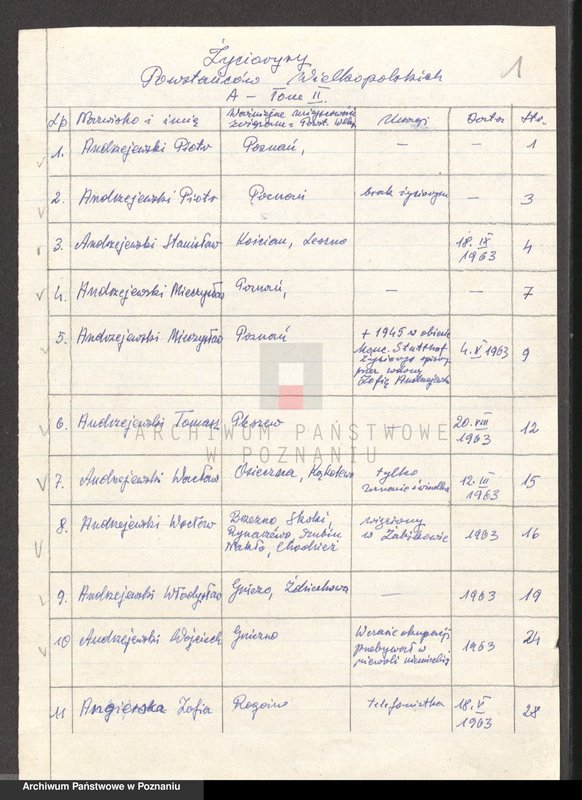 Życiorysy
Powstańców Wielkopolskich
A - Tom II
1
Lp Nazwisko i imię Ważniejsze miejscowości związane z Powst. Wlkp. Uwagi Data Str.
1. Andrzejewski Piotr Poznań, — — 1
2. Andrzejewski Piotr Poznań brak życiorysu — 3
3. Andrzejewski Stanisław Kościan, Leszno 18. IX 1963 4
4. Andrzejewski Mieczysław Poznań, — — 7
5. Andrzejewski Mieczysław Poznań + 1945 w obozie
konc. Stutthof
życiorys spisany
przez wdowę
Zofię Andrzejewską
4. V 1963 9
6. Andrzejewski Tomasz Pleszew — 20. VIII 1963 12
ARCHIWUM PAŃSTWOWE
W POZNANIU
7. Andrzejewski Wacław Osieczna, Kąkolewo tylko
12. III 1963 15
8. Andrzejewski Wacław
Rynarzewo, Szubin
Nakło, Chodzież
więziony
w Żabikowie
1963 16
9. Andrzejewski Władysław Gniezno, Zdziechowa — 1963 19
10 Andrzejewski Wojciech Gniezno W czasie okupacji
przebywał w
niewoli niemieckiej
1963 24
11 Angierska Zofia Rogoźno telefonistka 18. VI 1963 28
Archiwum Państwowe w Poznaniu